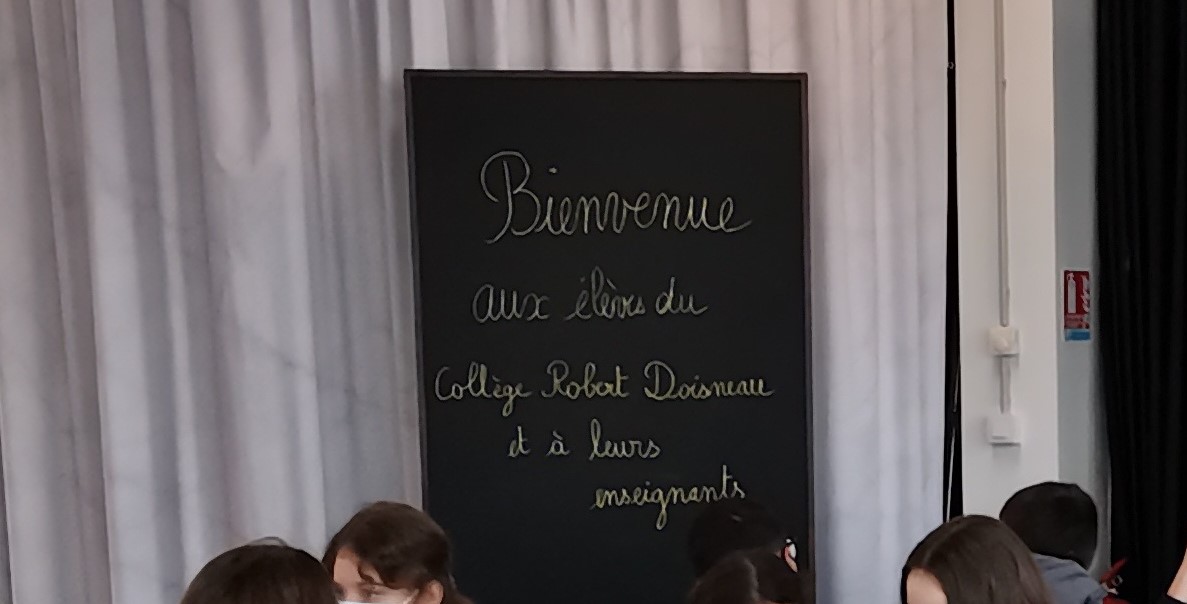 Bienvenue
aux élèves du
Collège Robert Doisneau
et à leurs
enseignants